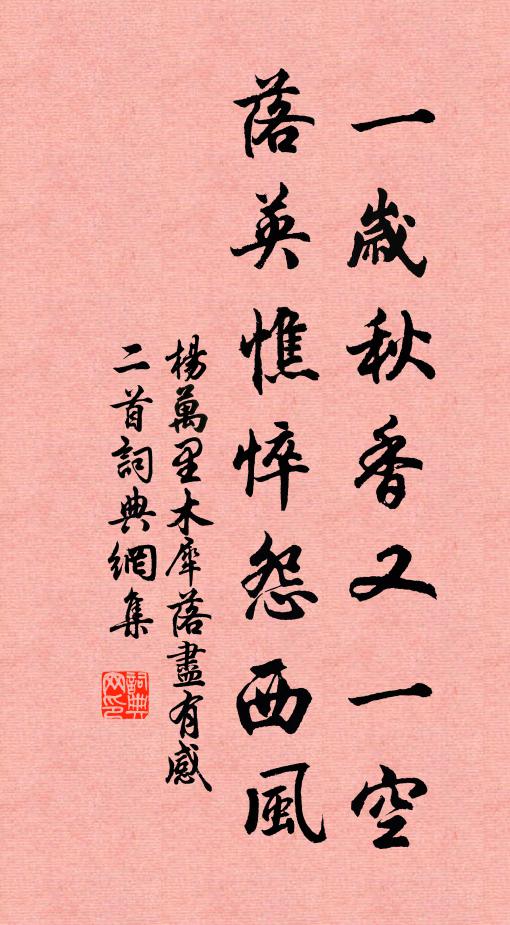 一歲秋香又一空
落英憔悴怨西風
楊萬里木犀落盡有感
二首詞典網集
詞典網印